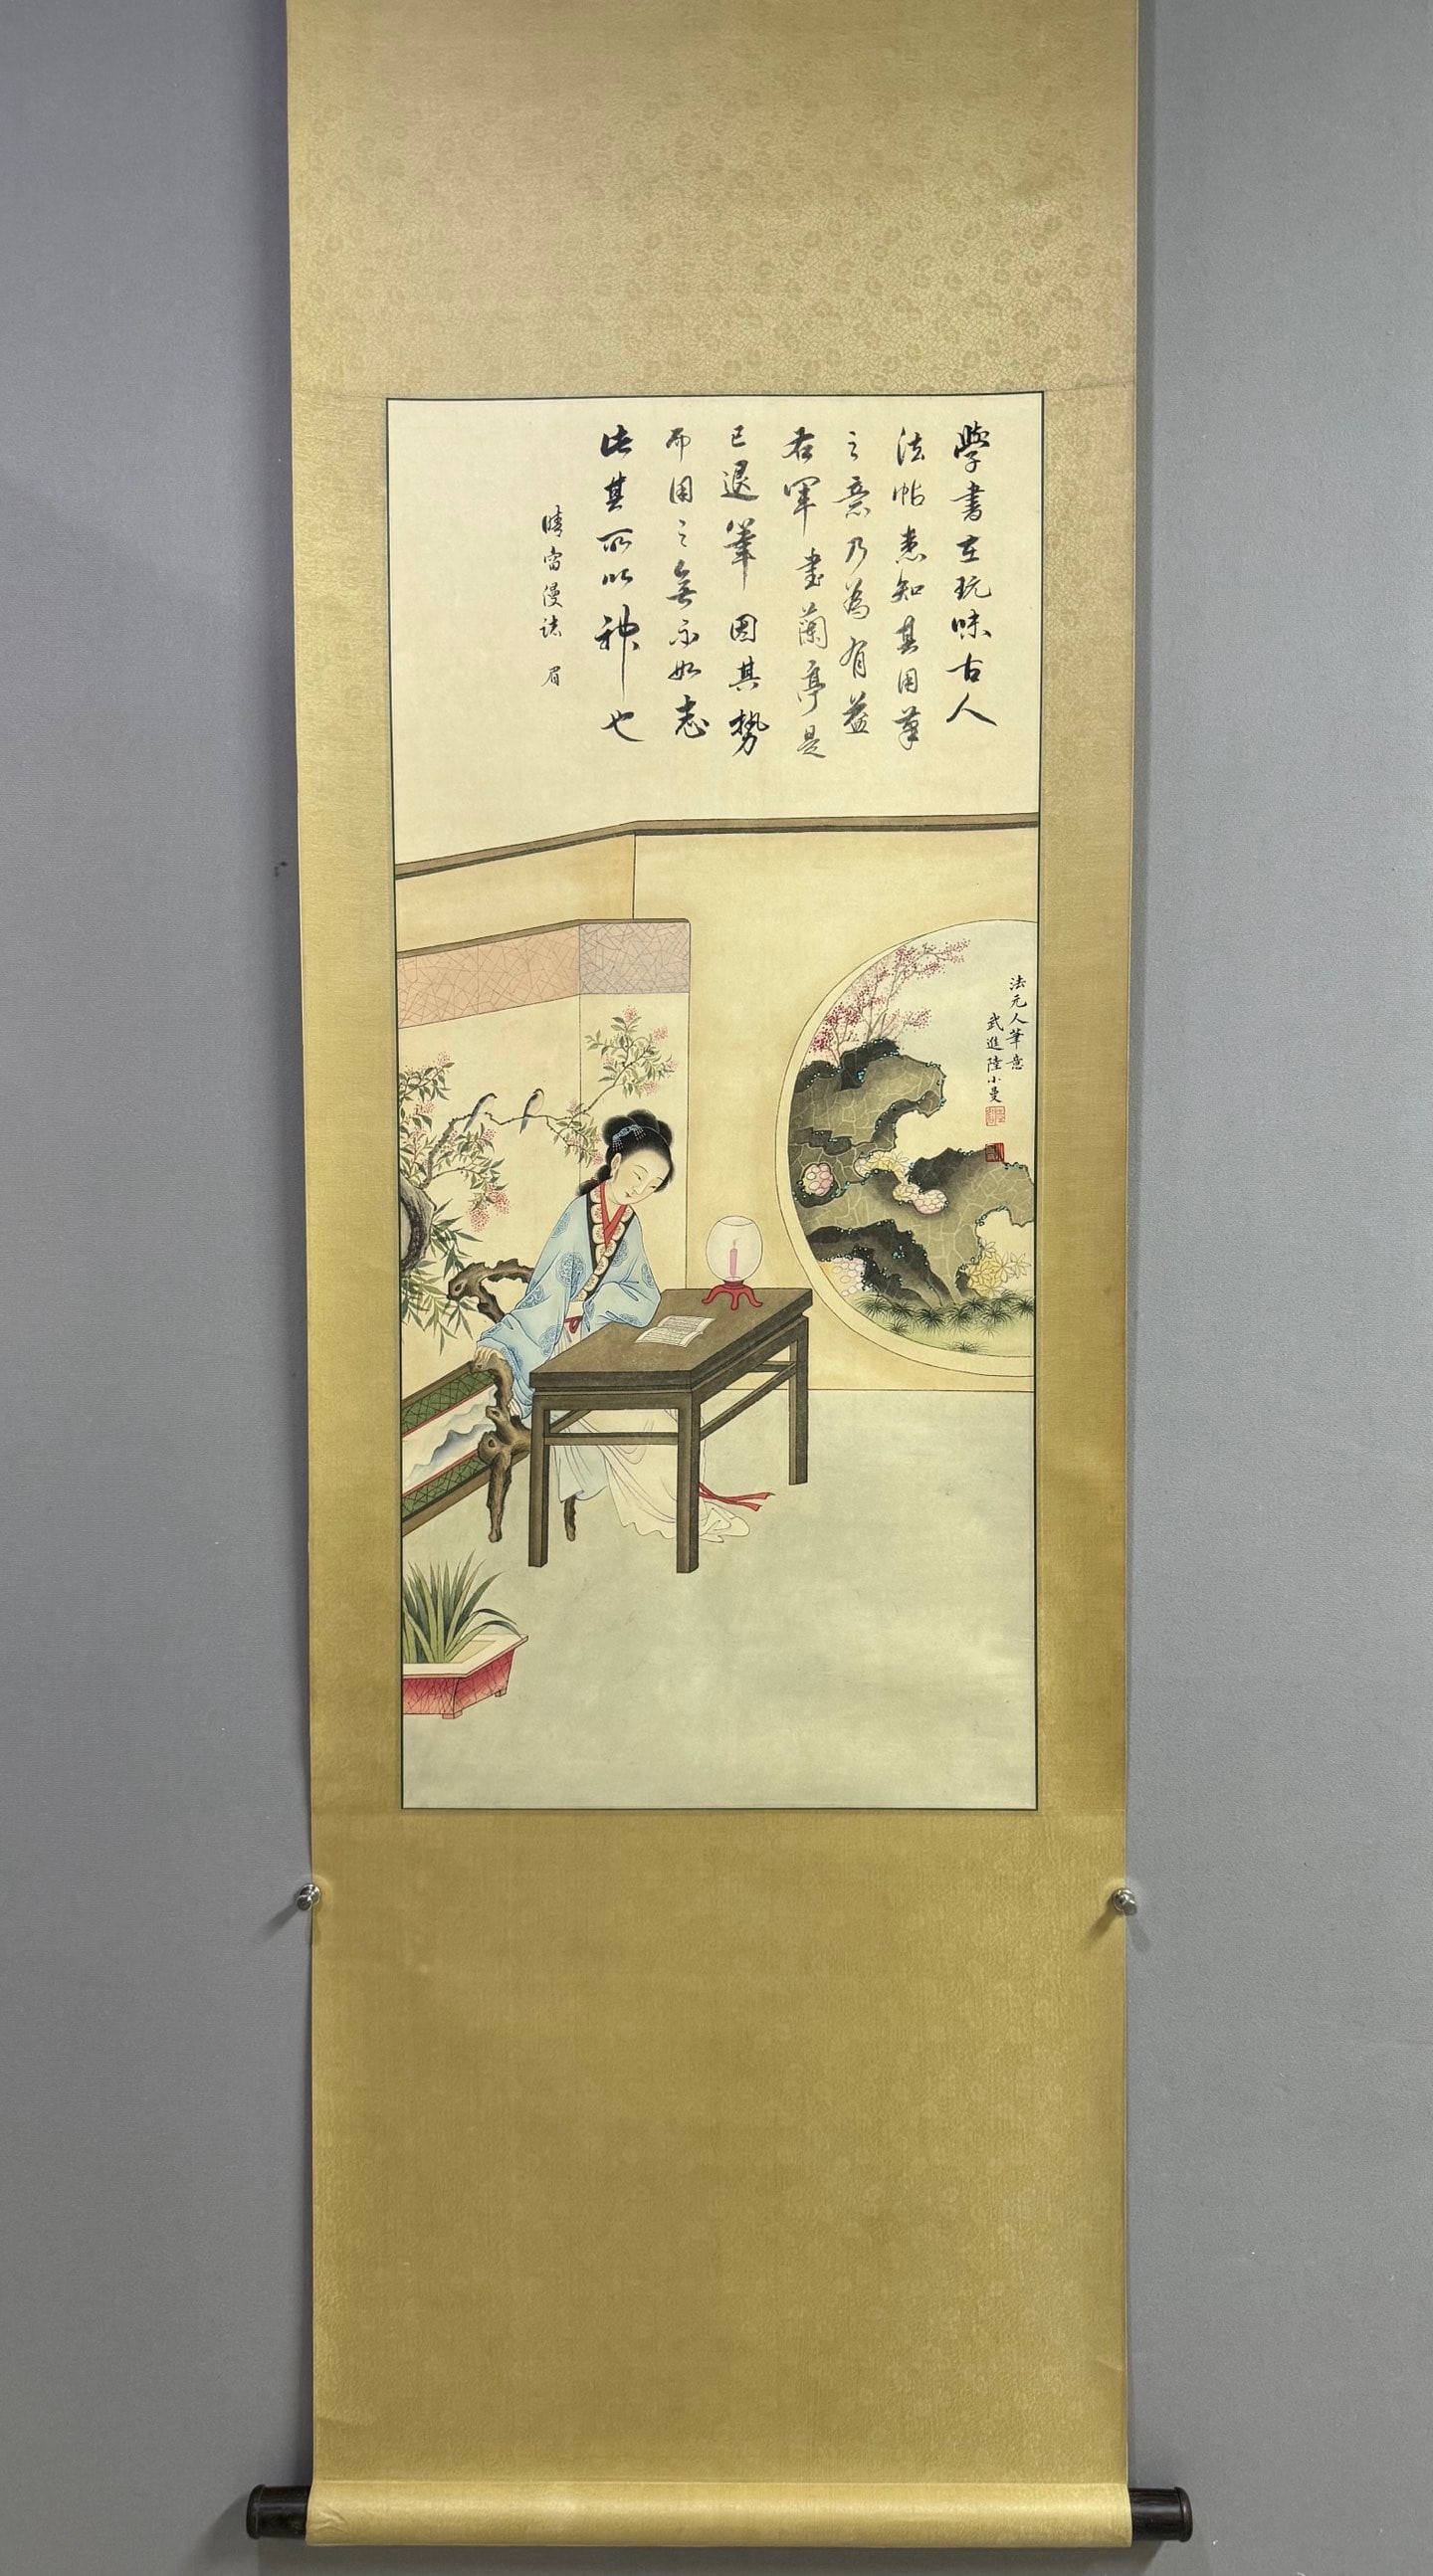 學書在玩味古人
法帖悉知其用筆
之意乃為有益
右軍書蘭亭是
已退筆因其勢
而用之無不如志
其所以神也
晴窗漫誌 眉
法元人筆意
武進陸小曼